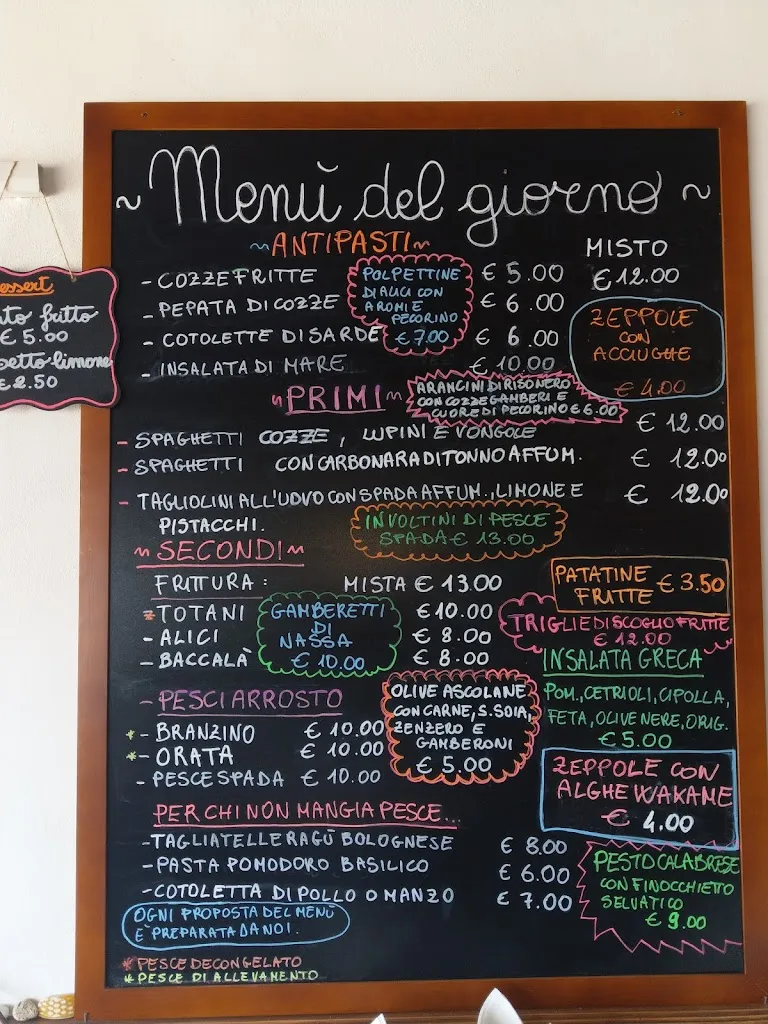 ~ Menù del giorno ~
~ANTIPASTI~
MISTO
€ 12.00
- COZZE FRITTE € 5.00
- PEPATA DI COZZE € 6.00
- COTOLETTE DI SARDE € 6.00
- INSALATA DI MARE € 10.00
POLPETTINE
DI ALICI CON
AROMI E
PECORINO
€ 7.00
ZEPPOLE
CON
ACCIUGHE
€ 4.00
~PRIMI~
ARANCINI DI RISO NERO
CON COZZE GAMBERI E
CUORE DI PECORINO € 6.00
- SPAGHETTI COZZE, LUPINI E VONGOLE € 12.00
- SPAGHETTI CON CARBONARA DI TONNO AFFUM. € 12.00
- TAGLIOLINI ALL'UOVO CON SPADA AFFUM., LIMONE E € 12.00
PISTACCHI.
INVOLTINI DI PESCE
SPADA € 13.00
~SECONDI~
FRITTURA: MISTA € 13.00
*TOTANI € 10.00
- ALICI € 8.00
- BACCALÀ € 8.00
GAMBERETTI
DI
NASSA
€ 10.00
PATATINE
FRITTE € 3.50
TRIGLIE DI SCOGLIO FRITTE
€ 12.00
INSALATA GRECA
POM., CETRIOLI, CIPOLLA,
FETA, OLIVE NERE, ORIG.
€ 5.00
- PESCI ARROSTO
*- BRANZINO € 10.00
*- ORATA € 10.00
- PESCE SPADA € 10.00
OLIVE ASCOLANE
CON CARNE, S. SOIA,
ZENZERO E
GAMBERONI
€ 5.00
ZEPPOLE CON
ALGHE WAKAME
€ 4.00
PER CHI NON MANGIA PESCE...
- TAGLIATELLE RAGÙ BOLOGNESE € 8.00
- PASTA POMODORO BASILICO € 6.00
- COTOLETTA DI POLLO O MANZO € 7.00
PESTO CALABRESE
CON FINOCCHIETTO
SELVATICO
€ 9.00
OGNI PROPOSTA DEL MENÙ
E' PREPARATA DA NOI.
*PESCE DECONGELATO
*PESCE DI ALLEVAMENTO
essert
fritto
€ 5.00
limone
€ 2.50